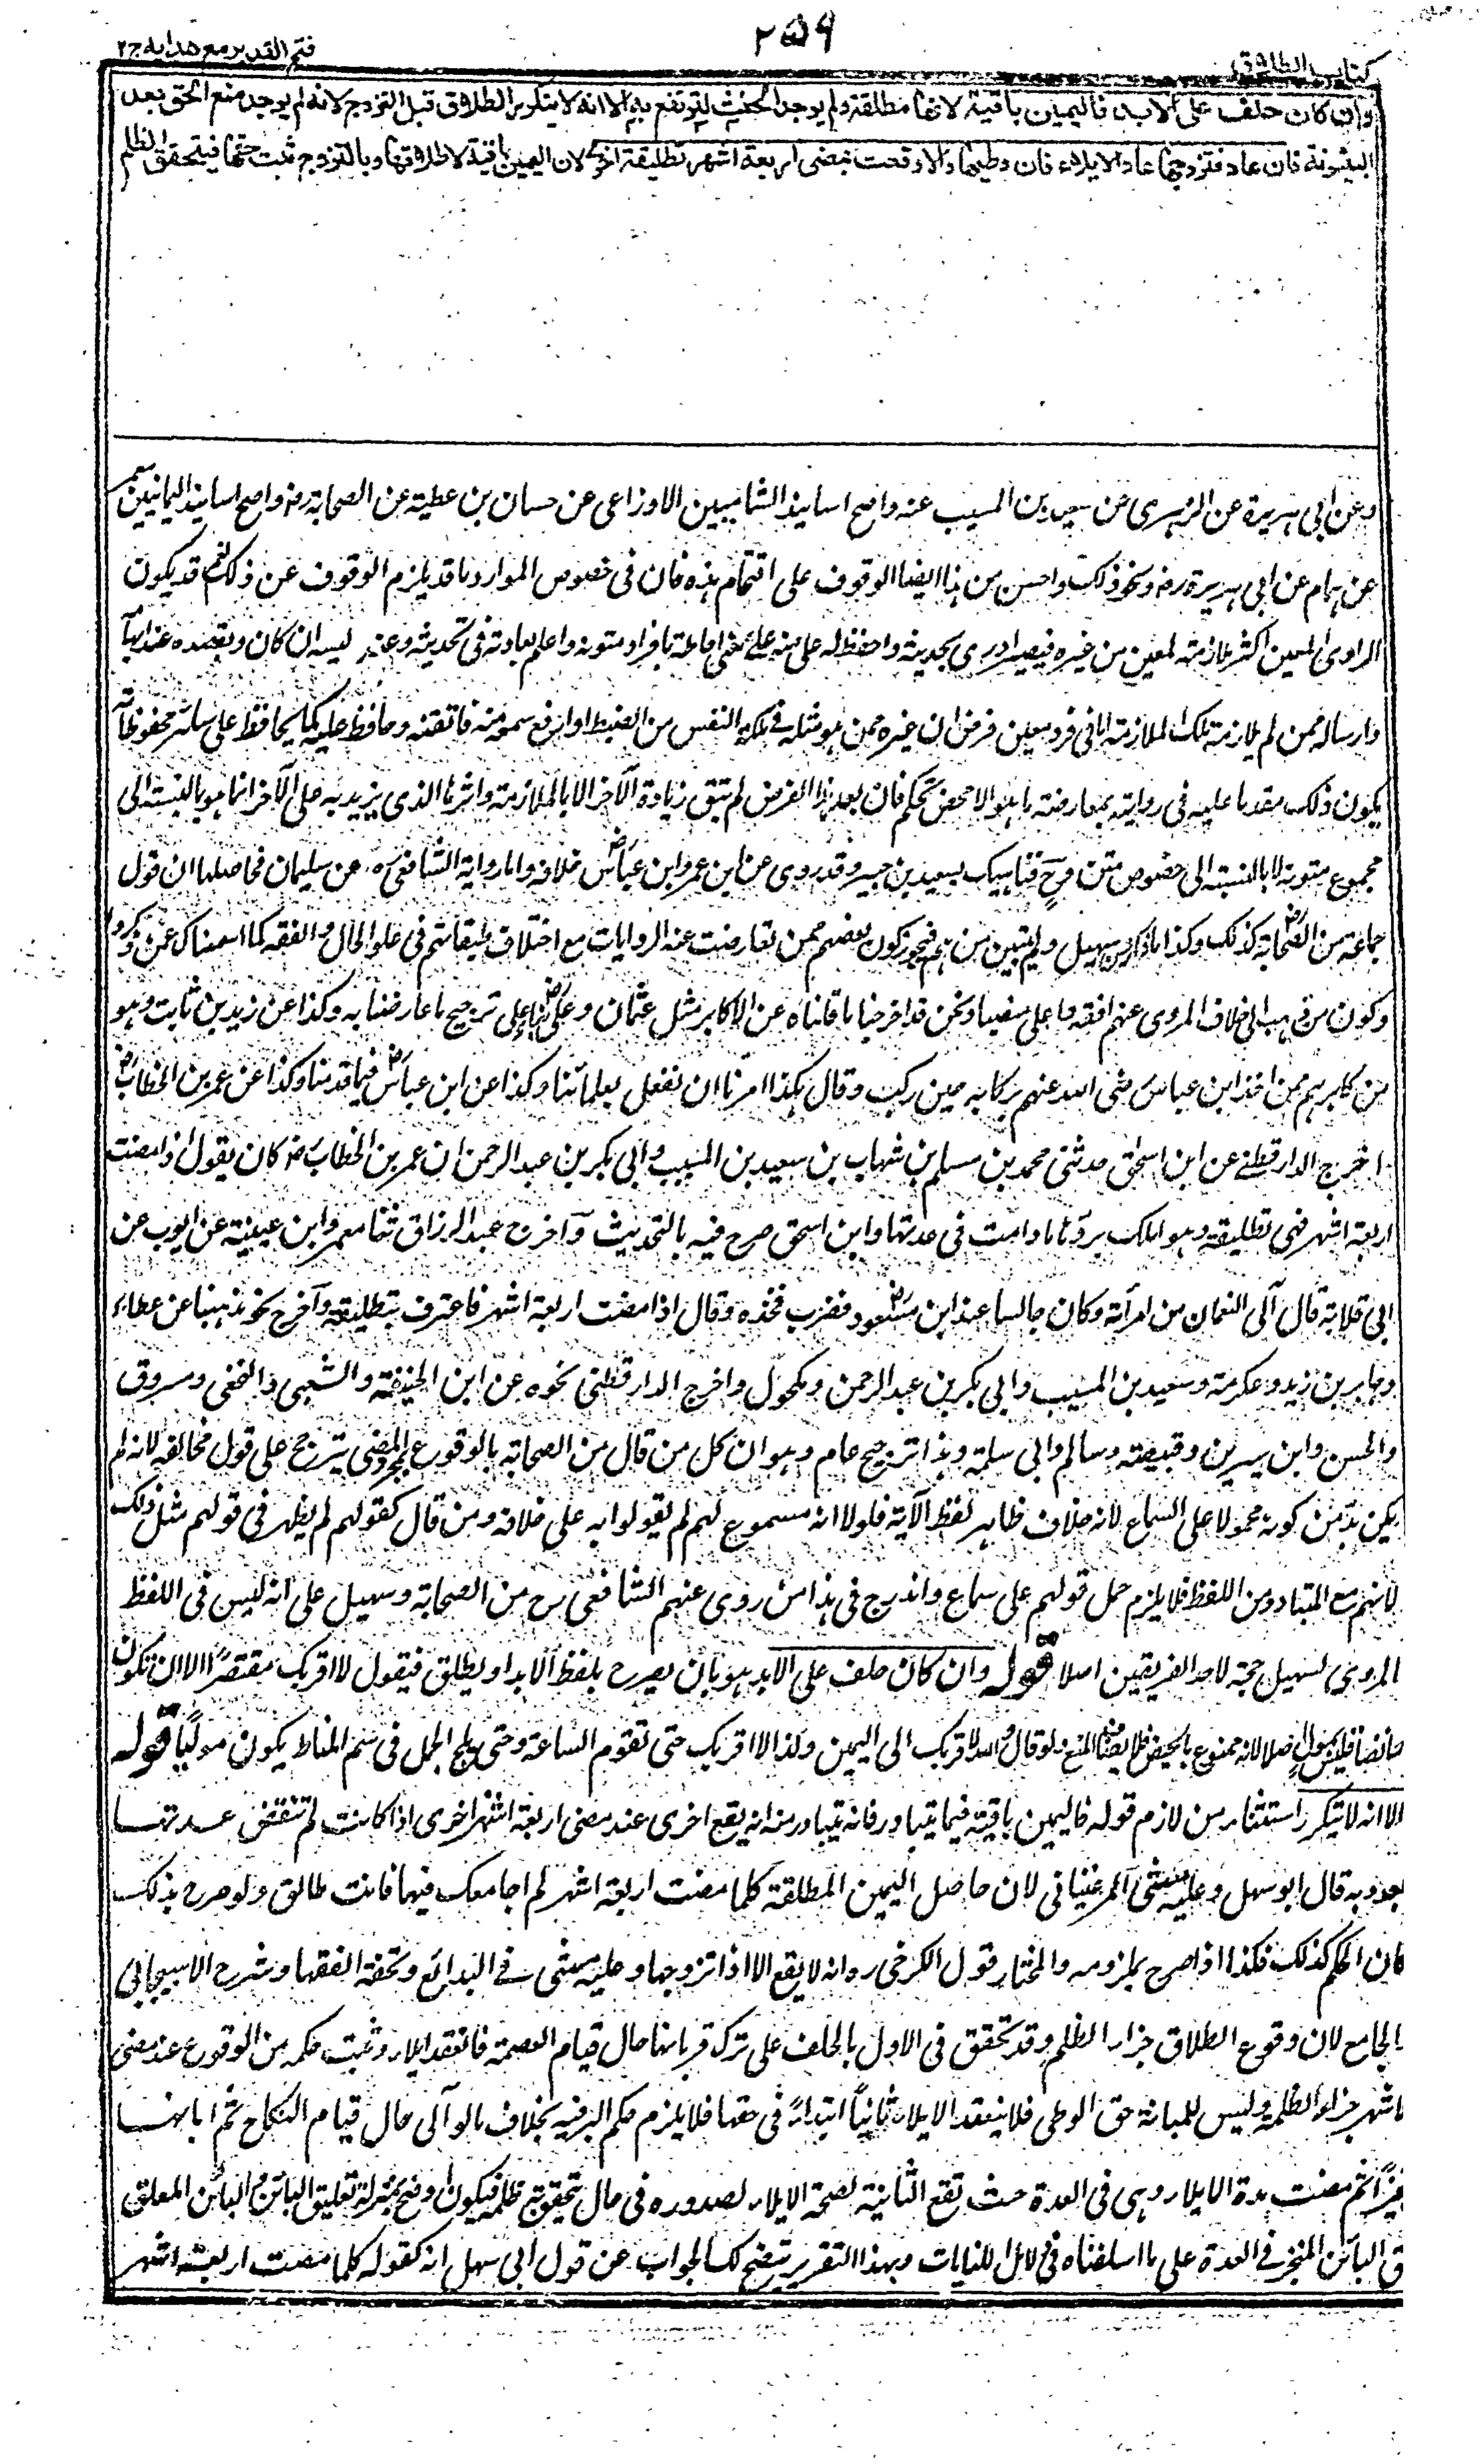 كتاب الطلاق
٢٥٩
فتح القدير مع هدايه ج٢
وان كان حلف على الابد فاليمين باقية لانها مطلقة ولم يوجد الحنث لترتفع به الا انه لا يتكرر الطلاق قبل التزوج لانه لم يوجد منع الحق بعد
البينونة فان عاد فتزوجها عاد الايلاء فان وطيها والا وقعت بمضى اربعة اشهر تطليقة اخرى لان اليمين باقية لاطلاقها وبالتزوج ثبت حقها فيتحقق الظلم
وعن ابى هريرة عن الزهرى عن سعيد بن المسيب عنه واصح اسانيد الشاميين الاوزاعى عن حسان بن عطية عن الصحابة رض واصح اسانيد اليمانيين معمر
عن همام عن ابى هريرة رض ونحو ذلك واحسن من هذا ايضا الوقوف على اقتحام هذه فان فى خصوص الموارد ما قد يلزم الوقوف عن ذلك نعم قد يكون
الراوى المعين اكثر ملازمة لمعين من غيره فيصير ادرى بحديثه واحفظ له على منه على معنى احاطة بافراد متونه واعلم بعادته فى تحديثه وعند ليسه ان كان وبقصده عند ابهامه
وارساله ممن لم يلازمه تلك الملازمة اما فى فرد معين فرض ان غيره ممن هو مثله فى ملكة النفس من الضبط او ارفع سمعه منه فاتقنه وحافظ عليه كما يحافظ على سائر محفوظاته
يكون ذلك مقدما عليه فى روايته بمعارضته فما هو الا محض تحكم فان بعد هذا الفرض لم تبق زيادة الآخر الا بالملازمة واثرها الذى يزيد به على الآخر انما هو بالنسبة الى
مجموع متونه لا بالنسبة الى خصوص متن وح فناهيك بسعيد بن جبير وقد روى عن ابن عمر وابن عباس رض خلافه واما رواية الشافعى رح عن سليمان فحاصلها ان قول
جماعة من الصحابة رض كذلك وكذا ما ذكر من سهيل ولم يتبين من هم فيجوز كون بعضهم ممن تعارضت عنه الروايات مع اختلاف طبقاتهم فى علو الحال والفقه كما اسمعناك عمن ذكروا
وكون من ذهب الى خلاف المروى عنهم افقه واعلى منصبا ونحن قد اخرجنا ما قلناه عن الاكابر مثل عثمان وعلى رض بناء على ترجيح ما عارضنا به وكذا عن زيد بن ثابت وهو
من كابرهم ممن اخذ ابن عباس رضى الله عنهم بركابه حين ركب وقال هكذا امرنا ان نفعل بعلمائنا وكذا عن ابن عباس رض فيما قدمناه وكذا عن عمر بن الخطاب رض
اخرج الدارقطنى عن ابن اسحق حدثنى محمد بن مسلم بن شهاب بن سعيد بن المسيب وابى بكر بن عبد الرحمن ان عمر بن الخطاب رض كان يقول اذا مضت
اربعة اشهر فهى تطليقة وهو املك بردها ما دامت فى عدتها وابن اسحق صرح فيه بالتحديث وآخرج عبد الرزاق ثنا معمر وابن عيينة عن ايوب عن
ابى قلابة قال آلى النعمان من امرأته وكان جالسا عند ابن مسعود رض فضرب فخذه وقال اذا مضت اربعة اشهر فاعترف بتطليقة وآخرج نحو مذهبنا عن عطاء
وجابر بن زيد وعكرمة وسعيد بن المسيب وابى بكر بن عبد الرحمن ومكحول واخرج الدارقطنى نحوه عن ابن الحنفية والشعبى والنخعى ومسروق
والحسن وابن سيرين وقبيصة وسالم وابى سلمة وهذا ترجيح عام وهو ان كل من قال من الصحابة بالوقوع بمجرد المضى يترجح على قول مخالفه لانه لم
يكن بد من كونه محمولا على السماع لانه خلاف ظاهر لفظ الآية فلولا انه مسموع لهم لم يقولوا به على خلافه ومن قال كقولهم لم يظهر فى قولهم مثل ذلك
لانهم مع المتبادر من اللفظ فلا يلزم حمل قولهم على سماع واندرج فى هذا من روى عنهم الشافعى رح من الصحابة وسهيل على انه ليس فى اللفظ
المروى لسهيل حجة لاحد الفريقين اصلا قوله وان كان حلف على الابد هو بان يصرح بلفظ الابد او يطلق فيقول لا اقربك مقتصرًا الا ان تكون
حائضا فليس بمول اصلا لانه ممنوع بالحيض فلا يضاف المنع ولو قال والله لا اقربك الى اليمين ولذا لا اقربك حتى تقوم الساعة وحتى يلج الجمل فى سم الخياط يكون موليًا قوله
الا انه لا يتكرر استثناء من لازم قوله فاليمين باقية فيما يتبادر فانه يتبادر منه انه يقع اخرى عند مضى اربعة اشهر اخرى اذا كانت لم تنقض عدتها
بعد وبه قال ابو سهل وعليه مشى المرغينانى لان حاصل اليمين المطلقة كلما مضت اربعة اشهر لم اجامعك فيها فانت طالق ولو صرح بذلك
كان الحكم كذلك فكذا اذا صرح بملزومه والمختار قول الكرخى رو انه لا يقع الا اذا تزوجها وعليه مشى فى البدائع وتحفة الفقها وشرح الاسبيجابى
الجامع لان وقوع الطلاق جزاء الظلم وقد تحقق فى الاول بالحلف على ترك قربانها حال قيام العصمة فانعقد ايلاء وثبت حكمه من الوقوع عند مضى
اشهر جزاء لظلمه وليس للمبانة حق الوطى فلا ينعقد الايلاء ثانيًا ابتداءً فى حقها فلا يلزم حكم البر فيه بخلاف ما لو آلى حال قيام النكاح ثم ابانها
تنجيزًا ثم مضت مدة الايلاء وهى فى العدة حيث تقع الثانية لصحة الايلاء لصدوره فى حال تحقق ظلمه فيكون اوضح بمنزلة تعليق البائن والبائن المعلق
ق البائن المنجز فى العدة على ما اسلفناه فى لائل الكنايات وبهذا التقرير يتضح لك الجواب عن قول ابى سهل انه كقوله كلما مضت اربعة اشهر